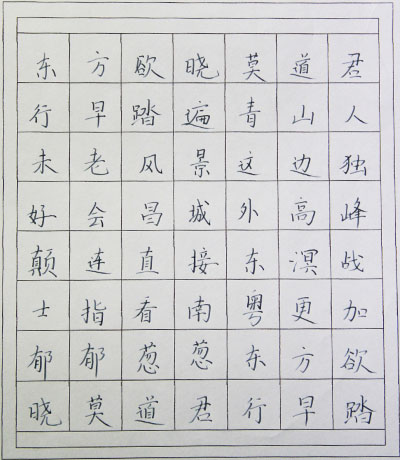 东方欧晓莫道君
行早踏遍青山人
未老风景这边独
好会昌城外高峰
颠连直接东溟战
士指看南粤更加
郁郁葱葱东方欲
晓莫道君行早踏